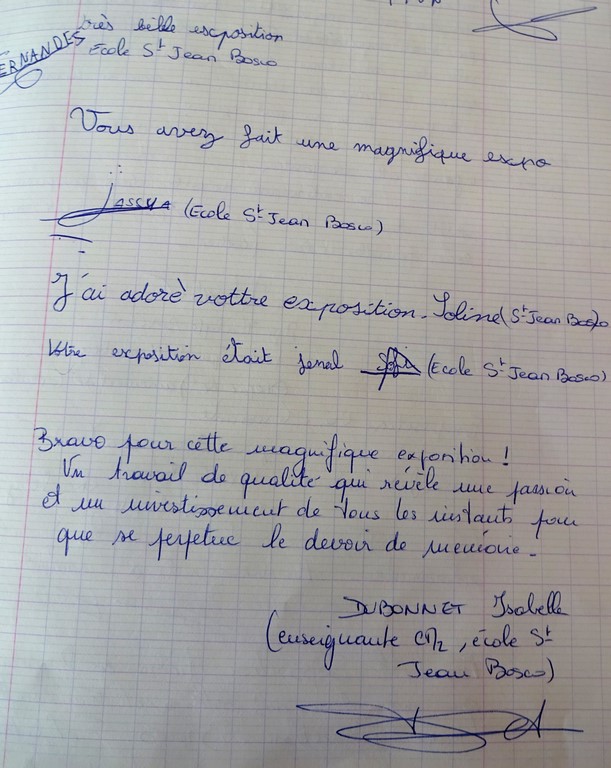 très belle escposition
ERNANDES
Ecole St Jean Bosco
Vous avez fait une magnifique escpo
(Ecole St Jean Bosco)
J'ai adoré vottre exposition. Soline (St Jean Bosco
Votre exposition était jenal (Ecole St Jean Bosco)
Bravo pour cette magnifique exposition !
Un travail de qualité qui révèle une passion
et un investissement de tous les instants pour
que se perpetue le devoir de mémoire.
DUBONNET Isabelle
(enseignante CM2, école St
Jean Bosco)